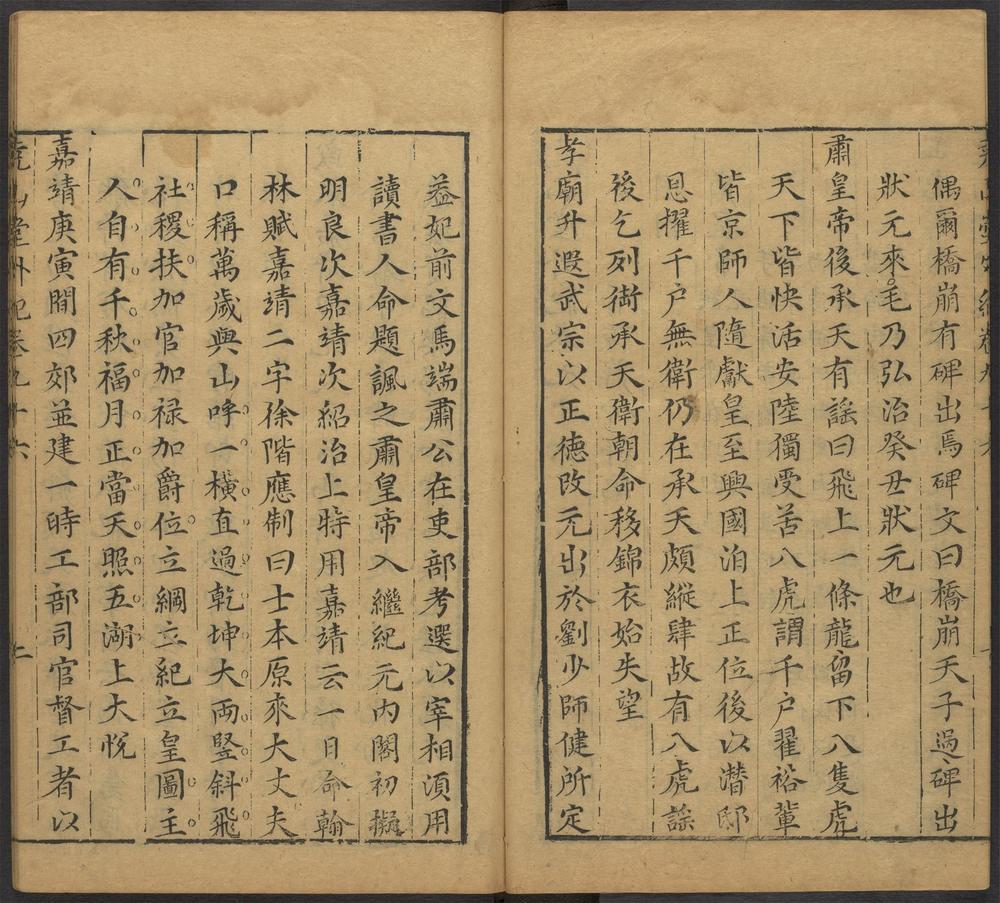 偶爾橋崩有碑出焉碑文曰橋崩天子過碑出
狀元來毛乃弘治癸丑狀元也
肅皇帝後承天有謠曰飛上一條龍留下八隻虎
天下皆快活安陸獨受苦八虎謂千戶翟裕輩
皆京師人隨獻皇至興國洎上正位後以潛邸
恩擢千戶無衛仍在承天頗縱肆故有八虎謠
後乞列銜承天衛朝命移錦衣始失望
孝廟升遐武宗以正德改元出於劉少師健所定
葢妃前文馬端肅公在吏部考選以宰相須用
讀書人命題諷之肅皇帝入繼紀元內閣初擬
明良次嘉靖次紹治上特用嘉靖云一日命翰
林賦嘉靖二字徐階應制曰士本原來大丈夫
口稱萬歲興山呼一橫直過乾坤大兩豎斜飛
社稷扶加官加祿加爵位立綱立紀立皇圖主
人自有千秋福月正當天照五湖上大悅
嘉靖庚寅間四郊並建一時工部司官督工者以
堯山堂外紀卷九十六